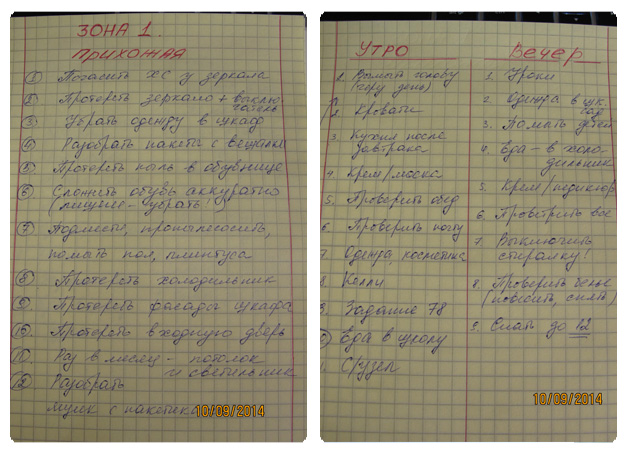 ЗОНА 1.
ПРИХОЖАЯ
1 Погасить ХС у зеркала
2 Протереть зеркало + выклю-
чатель
3 Убрать одежду в шкаф
4 Разобрать пакеты с вещами
5 Протереть пыль в обувнице
6 Сложить обувь аккуратно
(лишнее - убрать!)
7 Подмести, пропылесосить,
помыть пол, плинтуса
8 Протереть холодильник
9. Протереть фасады шкафа
10 Протереть входную дверь
11 Раз в месяц - потолок
и светильник
12 Разобрать
ящик с пакетика
10/09/2014
УТРО
1. Вымыть голову
(чер. день)
2 Кровати
3. Кухня после
завтрака
4 Крем/маска
5. Проверить обед
6. Проверить почту
7. Одежда, косметика
8.
9. Задание 78
Еда в школу
С/узел
Вечер
1. Уроки
2. Одежда в шк.
3. Помыть детей
4. Еда - в холо-
дильник
5. Крем/педикюр
6. Проветрить все
7. Выключить
стиралку!
8. Проверить белье
(повесить, снять)
9. Спать до 12
10/09/2014